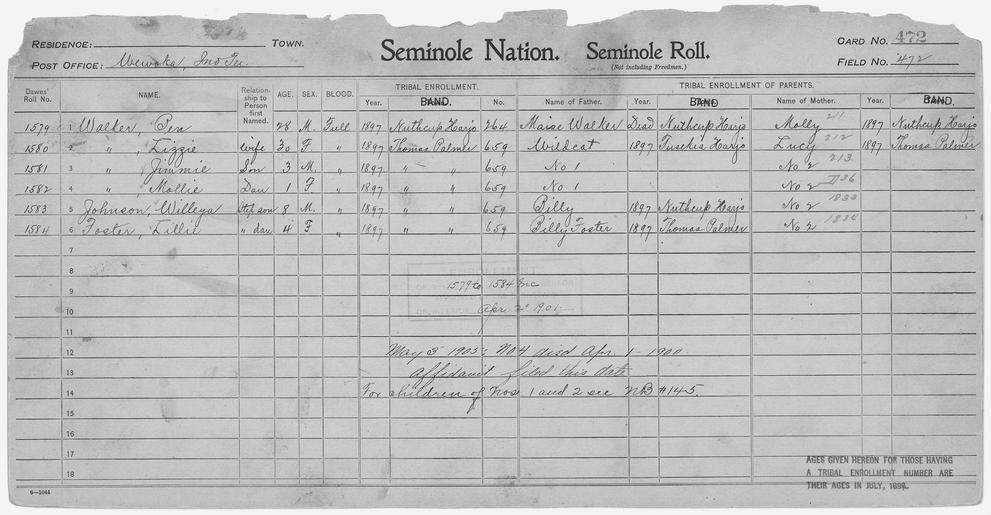 RESIDENCE: TOWN. Seminole Nation. Seminole Roll. CARD NO. 472
POST OFFICE: Wewoka Ind Ter. (Not including Freedmen.) FIELD NO. 472
Dawes' Roll No. NAME. Relationship to Person first Named. AGE. SEX. BLOOD. TRIBAL ENROLLMENT. TRIBAL ENROLLMENT OF PARENTS.
Year. BAND. No. Name of Father. Year. BAND Name of Mother. Year. BAND.
1579 1 Walker, Pen 28 M. Full 1897 Nuthcup Harjo 264 Maise Walker Dead Nuthcup Harjo Molly 211 1897 Nuthcup Harjo
1580 2 " , Lizzie wife 30 F. " 1897 Thomas Palmer 659 Wildcat 1897 Tusekia Harjo Lucy 212 1897 Thomas Palmer
1581 3 " , Jimmie Son 3 M. " 1897 " " 659 No 1 No 2 213
1582 4 " , Mollie Dau 1 F " 1897 " " 659 No 1 No 2
1583 5 Johnson, Willeya Step son 8 M. " 1897 " " 659 Billy 1897 Nuthcup Harjo No 2 1833
1584 6 Foster, Lillie " dau 4 F " 1897 " " 659 Billy Foster 1897 Thomas Palmer No 2 1834
7
8
9 1579 to 1584 Inc
10 Apr 2" 1901
11
12 May 3 1905: No 4 died Apr. 1 - 1900
13 Affidavit filed this date
14 For children of Nos 1 and 2 see NB #145.
15
16
17
18
AGES GIVEN HEREON FOR THOSE HAVING
A TRIBAL ENROLLMENT NUMBER ARE
THEIR AGES IN JULY, 1898.
6—5044